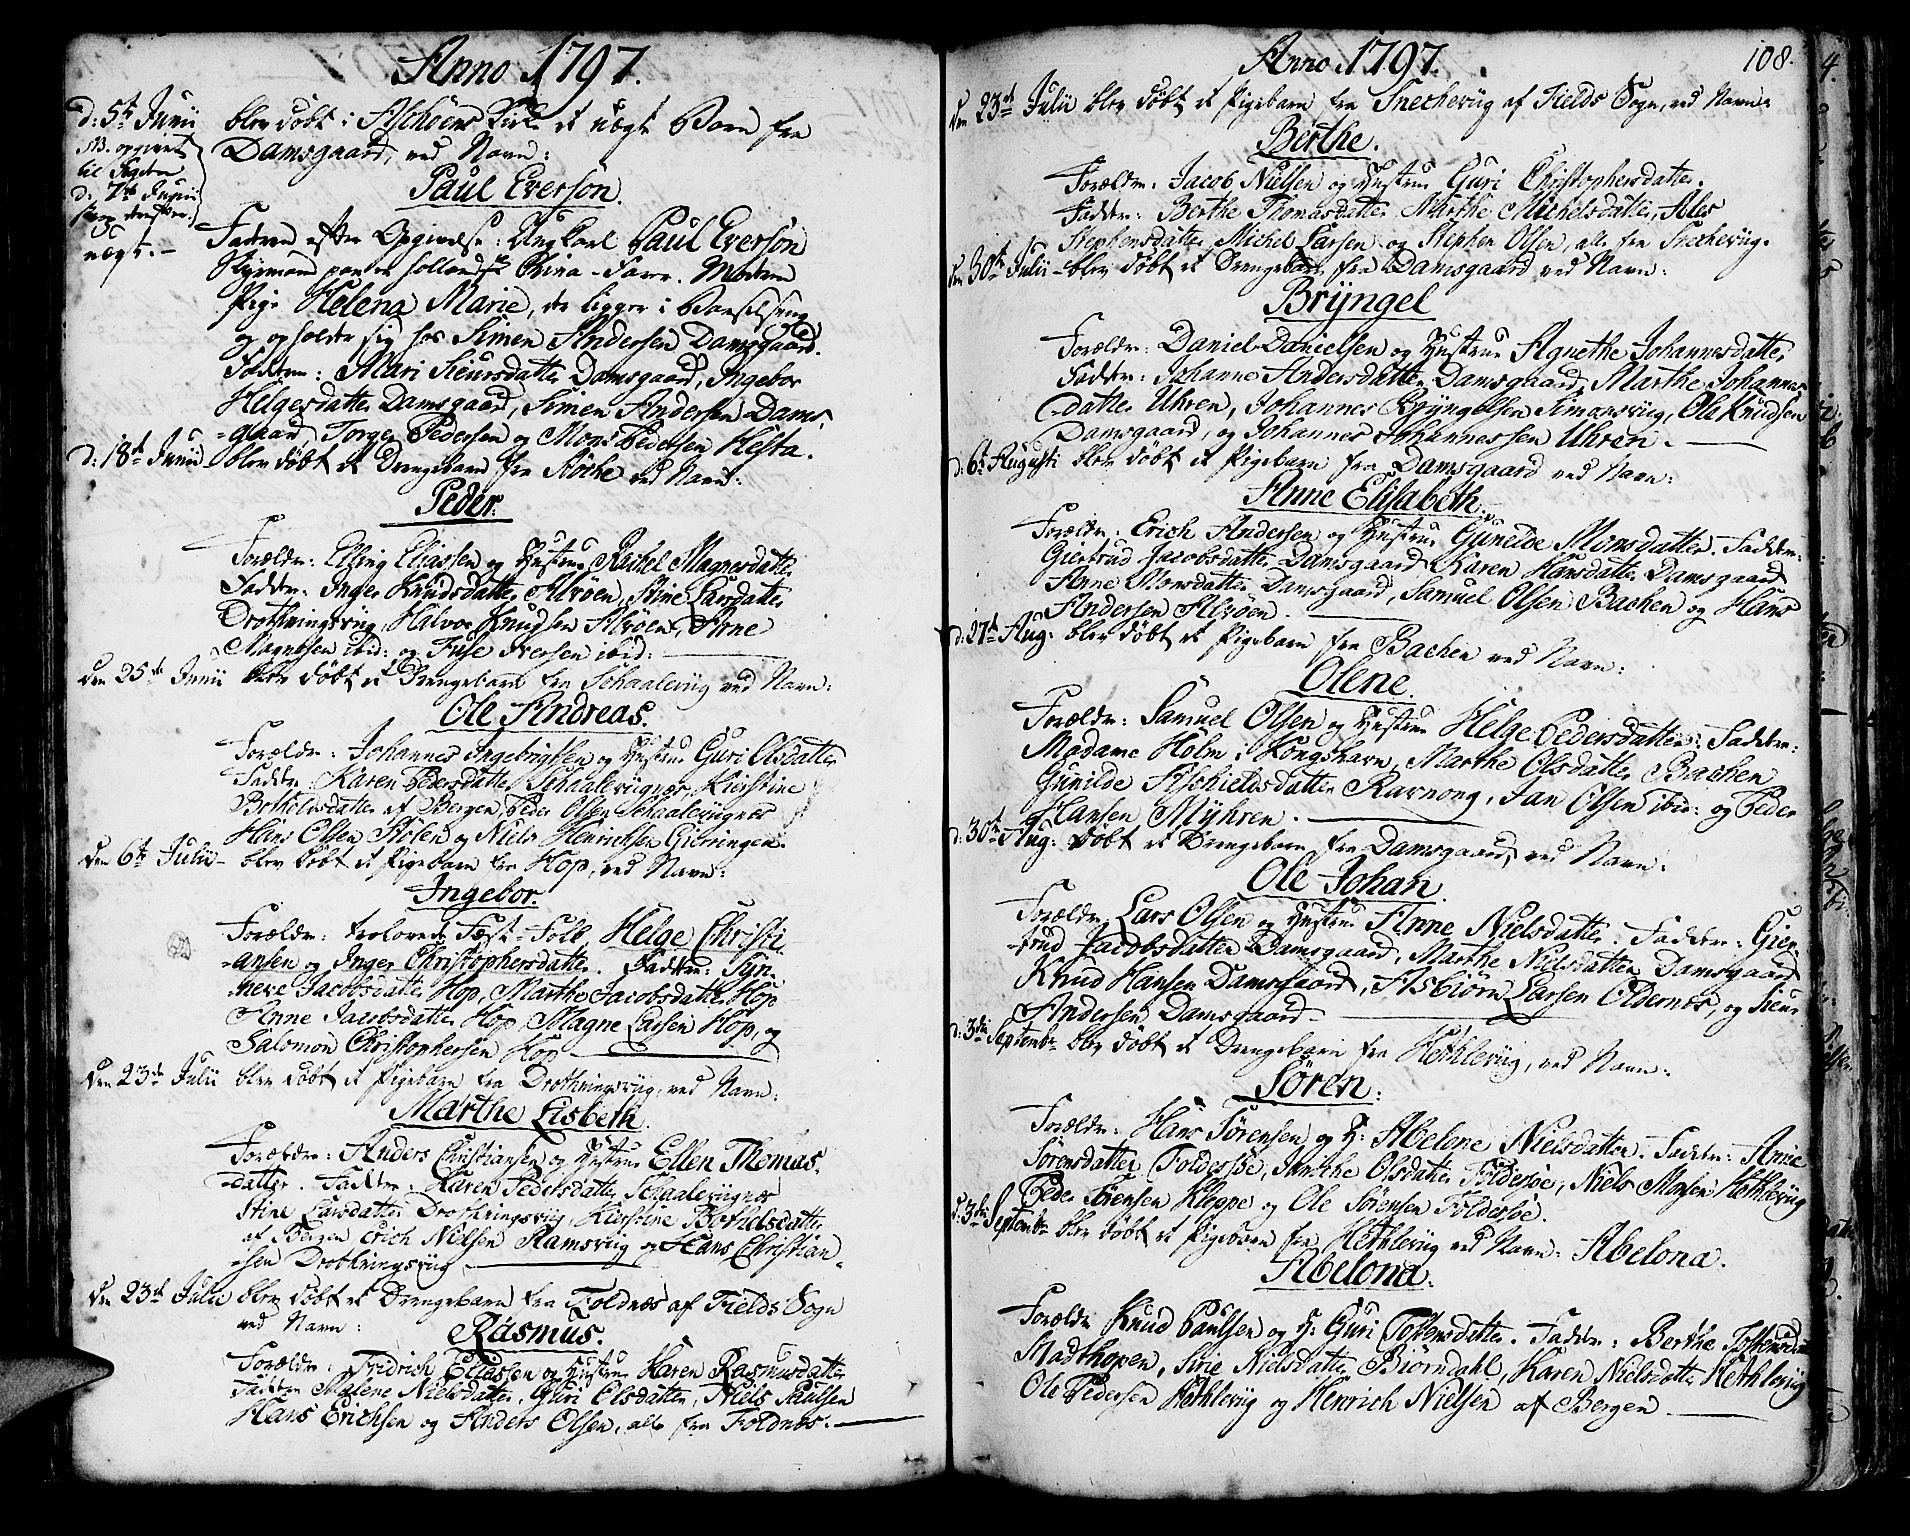 Anno 1797.
d: 5te Junii blev døbt i Aschöens Kirke et uægte Barn fra
NB. opgivet
til Fogden
d: 7de Junii
uægte.
Damsgaard, ved Navn:
Paul Everson.
Faderen efter Opgivelse: Ungkarl Paul Everson
Styrmand paa et hollandsk China-Farer. Moderen
Pige Helena Marie, der ligger i Barselseng
og opholder sig hos Simen Andersen Damsgaard.
Faddere: Mari Siursdatter Damsgaard, Ingebor
Helgesdatter Damsgaard, Simen Andersen Dams-
-gaard, Torger Pedersen og Mons Pedersen Hesta.
d: 18de Junii blev døbt et Drengebarn fra Röche ved Navn:
Peder.
Forældre: Elling Eliassen og Hustrue Rachel Magnesdatter
Faddere: Inger Knudsdatter Alvöen, Stine Larsdatter
Drothningsviig, Halvor Knudsen Alvöen, Arne
Magnesen ibid: og Fuse Iversen ibid:
den 25de Junii blev døbt et Drengebarn fra Schaaleviig ved Navn:
Ole Andreas.
Forældre: Johannes Ingebrigtsen og Hustrue Guri Olsdatter
Faddere: Karen Pedersdatter Schaaleviignæs, Kierstine
Bothelsdatter af Bergen, Peder Olsen Schaaleviignæs
Hans Olsen Stölen og Niels Henrichsen Gierringen.
den 6te Julii blev døbt et Pigebarn fra Hop, ved Navn:
Ingebor.
Forældre: trolovede Fæste-Folk Helge Christi-
-ansen og Inger Christophersdatter. Faddere: Syn-
neve Jacobsdatter Hop, Marthe Jacobsdatter Hop
Anne Jacobsdatter Hop, Magne Larsen Hop, og
Salomon Christophersen Hop
den 23de Julii blev døbt et Pigebarn fra Drothningsviig, ved Navn:
Marthe Lisbeth.
Forældre: Anders Christiansen og Hustrue Ellen Thomas-
-datter. Faddere: Karen Pedersdatter Schaaleviignæs
Stine Larsdatter Drothningsviig, Kierstine Bothelsdatter
af Bergen Erich Nielsen Ramsviig og Hans Christian-
-sen Drothningsviig
den 23de Julii blev døbt et Drengebarn fra Foldnæs af Fields Sogn
ved Navn:
Rasmus.
Forældre: Fredrich Eliassen og Hustrue Karen Rasmusdatter
Faddere Malene Nielsdatter, Guri Olsdatter, Niels Paulsen
Hans Erichsen og Anders Olsen, alle fra Foldnæs.
Anno 1797.
108.
den 23de Julii blev døbt et Pigebarn fra Snecheviig af Fields Sogn, ved Navn:
Berthe.
Forældre: Jacob Nielsen og Hustrue Guri Christophersdatter.
Faddere: Berthe Thomasdatter Marthe Michelsdatter, Ales
Stephensdatter Michel Larsen og Stephen Olsen, alle fra Snecheviig.
den 30te Julii blev døbt et Drengebarn fra Damsgaard ved Navn:
Bryngel
Forældre: Daniel Danielsen og Hustrue Agnethe Johannesdatter
Faddere: Johanne Andersdatter Damsgaard, Marthe Johannes-
-datter Uhren, Johannes Bryngelsen Simansviig, Ola Knudsen
Damsgaard, og Johannes Johannessen Uhren.
d: 6te Augusti blev døbt et Pigebarn fra Damsgaard ved Navn:
Anne Elisabeth.
Forældre: Erich Andersen og Hustrue Gunilde Monsdatter. Faddere:
Giertrud Jacobsdatter Damsgaard Karen Hansdatter Damsgaard
Anne Monsdatter Damsgaard, Samuel Olsen Bachen og Hans
Andersen Alvöen.
d: 27de Aug: blev døbt et Pigebarn fra Bachen ved Navn:
Olene.
Forældre: Samuel Olsen og Hustrue Helge Pedersdatter. Faddere:
Madame Holm i Kongshavn, Marthe Olsdatter Bachen
Gunilde Aschieldsdatter Ravnong, Jan Olsen ibid: og Peder
Hansen Myhren.
d: 30te Aug: døbt et Drengebarn fra Damsgaard, ved Navn:
Ole Johan.
Forældre Lars Olsen og Hustrue Anne Nielsdatter. Faddere: Gier-
-trud Jacobsdatter Damsgaard, Marthe Nielsdatter Damsgaard
Knud Hansen Damsgaard, Asbiörn Larsen Oldernæs, og Siur
Andersen Damsgaard
d: 3die Septembr blev døbt et Drengebarn fra Hethleviig, ved Navn:
Sören.
Forældre: Hans Sörensen og H: Abelone Nielsdatter. Faddere: Anne
Sörensdatter Foldersöe, Anne Olsdatter Foldersöe, Niels Monsen Hethleviig
Peder Sörensen Kleppe og Ole Sörensen Foldersöe.
d: 3die Septembr blev døbt et Pigebarn fra Hethleviig ved Navn: Abelona.
Abelona.
Forældre Knud Paulsen og H: Guri Tostensdatter. Faddere: Berthe Tostensd:
Stadthopen, Sirie Nielsdatter Biörndahl, Karen Nielsdatter Hethleviig
Ole Pedersen Hethleviig og Henrich Nielsen af Bergen